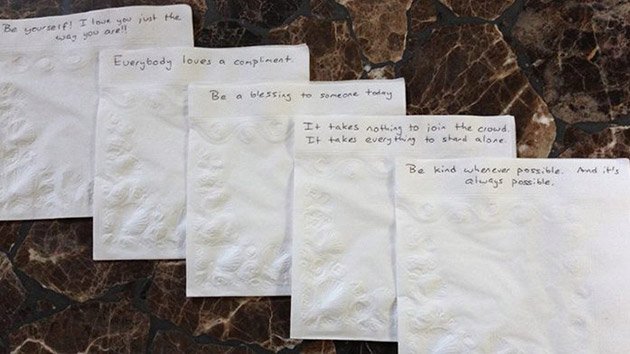 Be yourself! I love you just the
way you are!!
Everybody loves a compliment
Be a blessing to someone today
It takes nothing to join the crowd.
It takes everything to stand alone.
Be kind whenever possible. And it's
always possible.